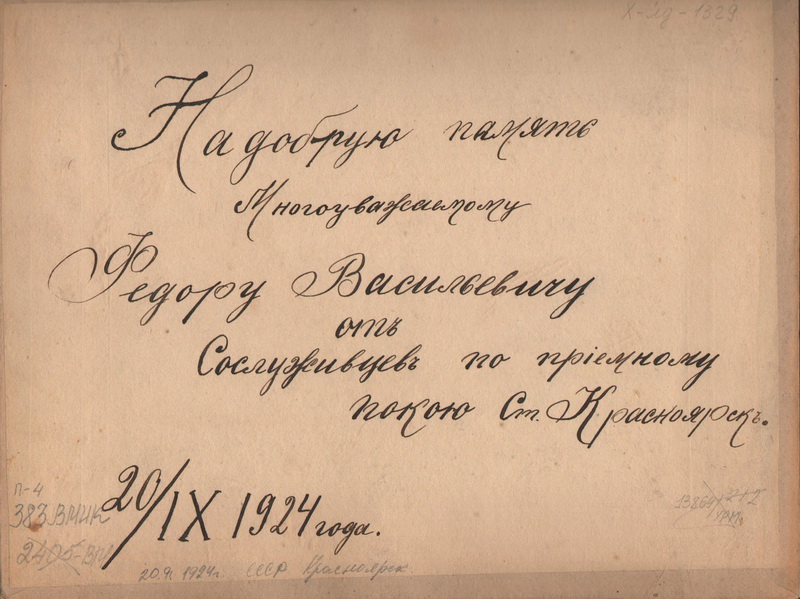 На добрую память
Многоуважаемому
Федору Васильевичу
отъ
Сослуживцевъ по пріемному
покою Ст. Красноярскъ.
20/IX 1924 года.
П-4
383 ВМИК
20.9. 1924г. СССР Красноярск